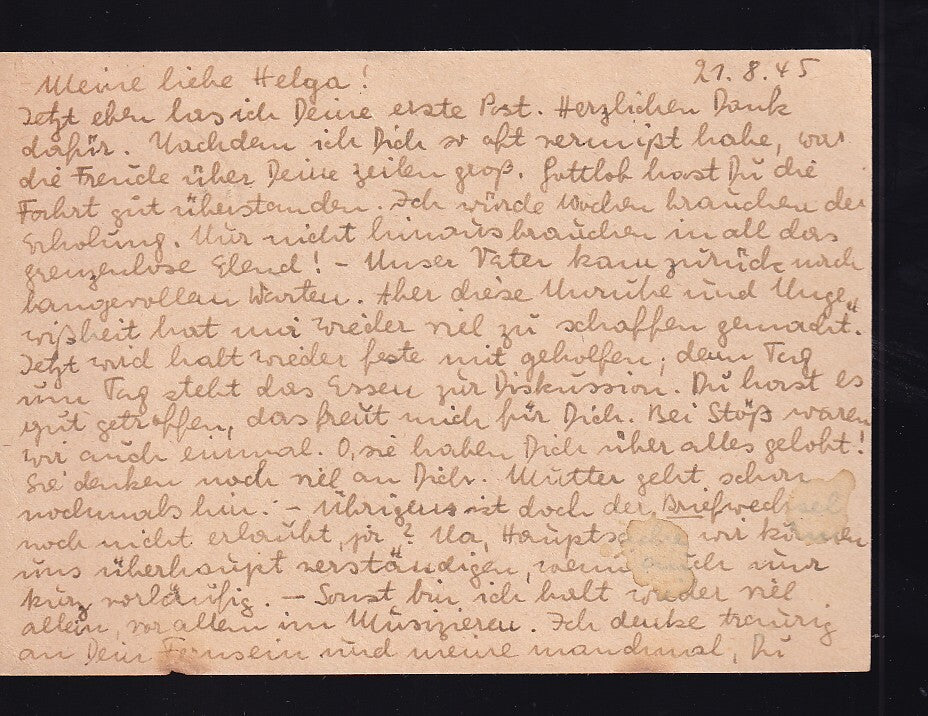 Meine liebe Helga! 21.8.45
Jetzt eben las ich Deine erste Post. Herzlichen Dank
dafür. Nachdem ich Dich so oft vermißt habe, war
die Freude über Deine Zeilen groß. Gottlob hast Du die
Fahrt gut überstanden. Ich würde Wochen brauchen der
Erholung. Nur nicht hinausbrauchen in all das
grenzenlose Elend! – Unser Vater kam zurück nach
bangevollem Warten. Aber diese Unruhe und Unge-
wißheit hat mir wieder viel zu schaffen gemacht.
Jetzt wird halt wieder feste mit geholfen; denn Tag
um Tag steht das Essen zur Diskussion. Du hast es
gut getroffen, das freut mich für Dich. Bei Stöß waren
wir auch einmal. O, sie haben Dich über alles gelobt!
Sie denken noch viel an Dich. Mutter geht schon
nochmals hin. – Übrigens ist doch der Briefwechsel
noch nicht erlaubt, ja? Na, Hauptsache wir können
uns überhaupt verständigen, wenn auch nur
kurz vorläufig. – Sonst bin ich halt wieder viel
allein, vor allem im Musizieren. Ich denke traurig
an Dein Fernsein und meine manchmal, Du